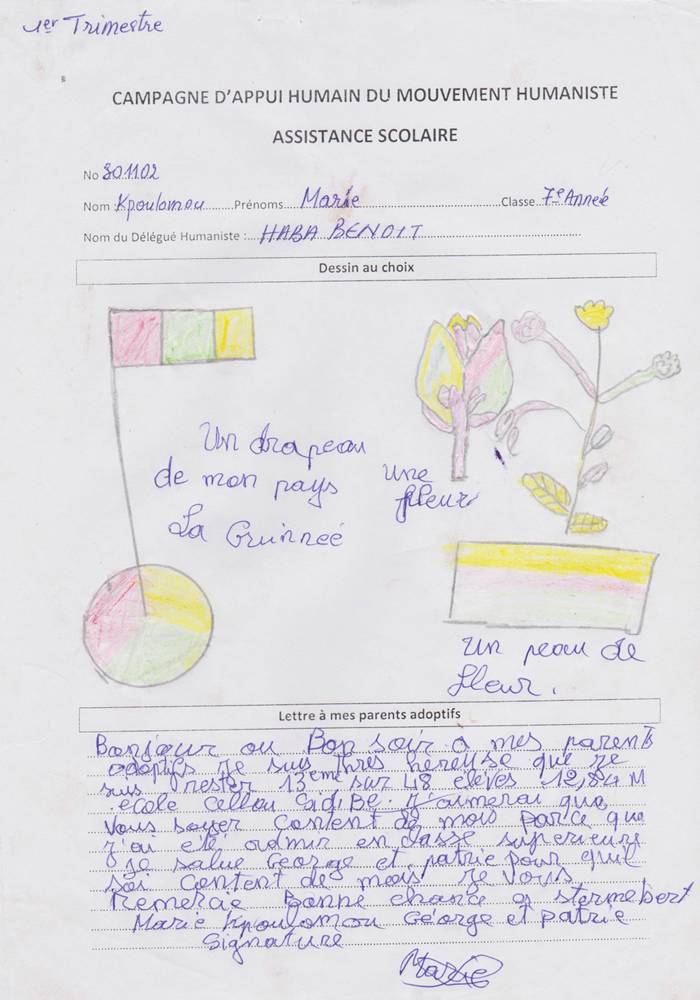 1er Trimestre
CAMPAGNE D'APPUI HUMAIN DU MOUVEMENT HUMANISTE
ASSISTANCE SCOLAIRE
No 801102
Nom Kpoulomou Prénoms Marie Classe 7e Année
Nom du Délégué Humaniste : HABA BENOIT
Dessin au choix
Un drapeau
de mon pays
La Guinneé
une
fleur
un peau de
fleur.
Lettre à mes parents adoptifs
Bonjour ou Bon soir a mes parents
adoptifs je suis thres hereuse que je
suis rester 13eme sur 48 eleves 12,84 M
école Cellou
vous soyer content de mois parce que
j'ai été admir en classe superieure
je salue George et patrie pour quil
soi content de mois je vous
remercie Bonne chance
Marie Kpoulomou George et patrie
Signature
Marie